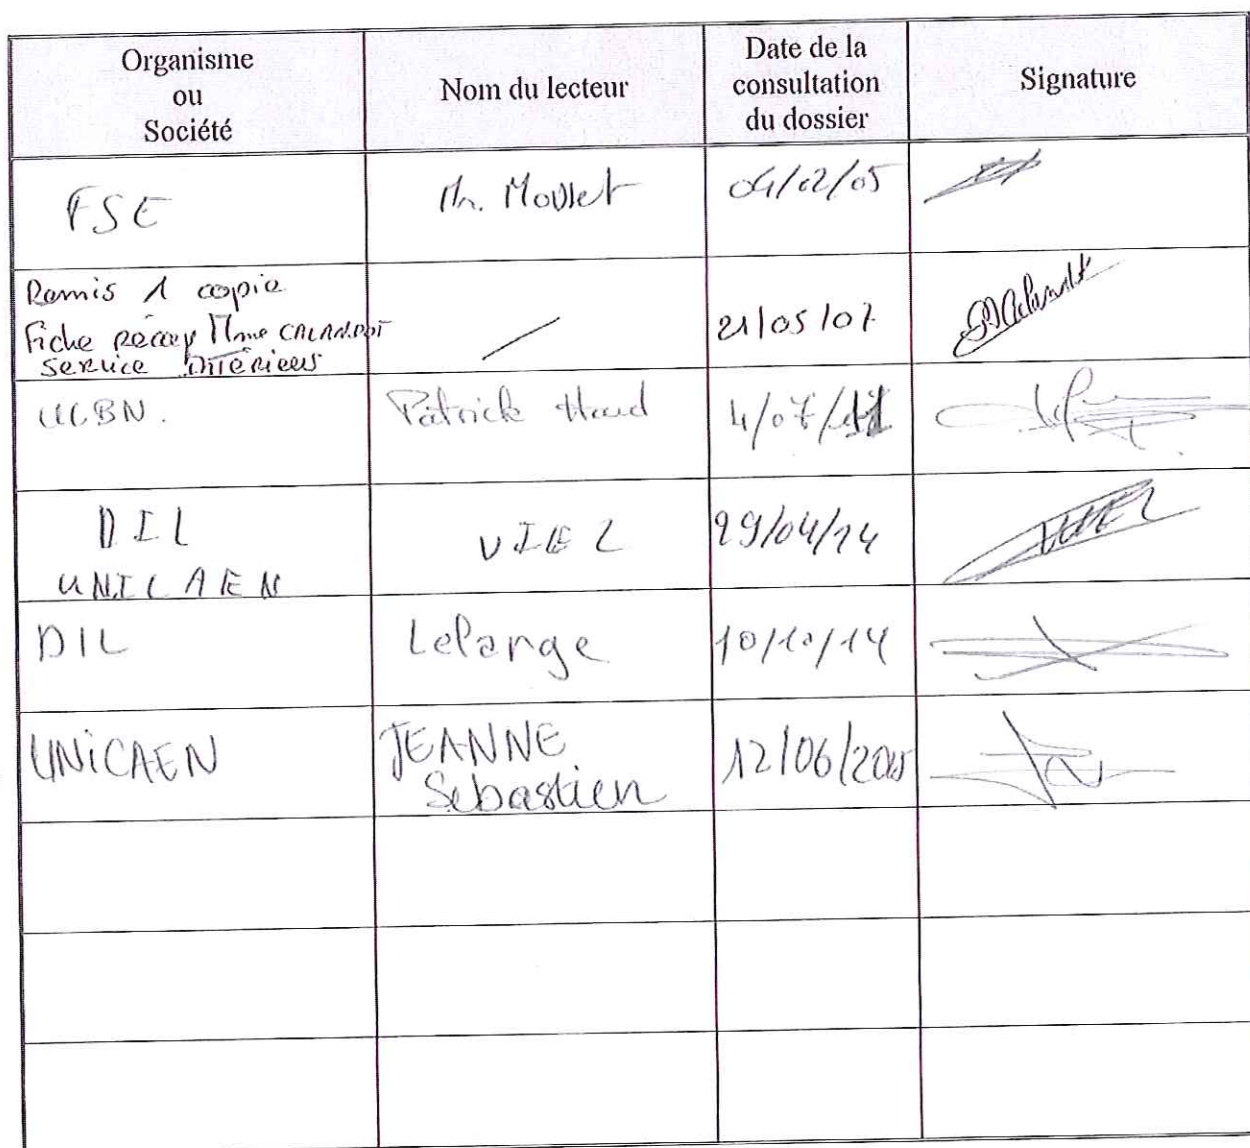 Organisme
ou
Société
Nom du lecteur
Date de la
consultation
du dossier
Signature
FSE
Mr. Mouset
04/02/05
Remis 1 copie
Fiche récap Mme
service intérieurs
21/05/07
UCBN.
Patrick
4/07/11
DIL
UNICAEN
VIEL
29/04/14
DIL
Lelange
10/10/14
UNiCAEN
JEANNE
Sébastien
12/06/2015